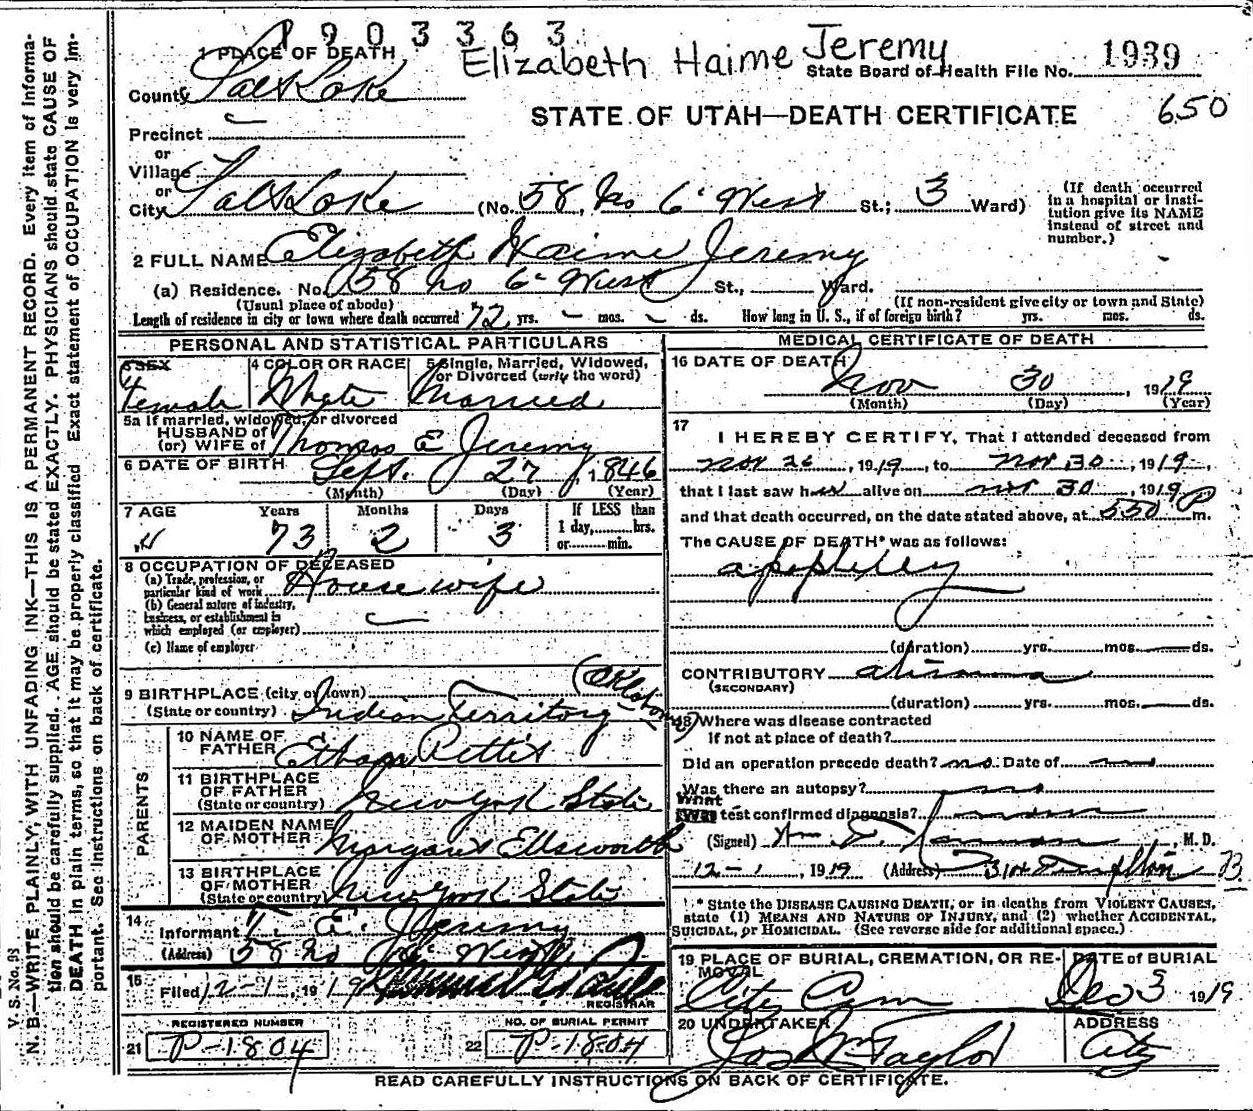 P903363
Elizabeth Haime Jeremy
1 PLACE OF DEATH
State Board of Health File No. 1939
County Salt Lake
STATE OF UTAH—DEATH CERTIFICATE 650
Precinct
or
Village
or
City Salt Lake (No. 58 No 6" West St.; 3 Ward)
(If death occurred in a hospital or institution give its NAME instead of street and number.)
2 FULL NAME Elizabeth Haime Jeremy
(a) Residence. No. 58 no 6" West St., Ward.
(Usual place of abode) (If non-resident give city or town and State)
Length of residence in city or town where death occurred 72 yrs. – mos. – ds. How long in U. S., if of foreign birth? yrs. mos. ds.
PERSONAL AND STATISTICAL PARTICULARS
3 SEX
Female
4 COLOR OR RACE
White
5 Single, Married, Widowed, or Divorced (write the word)
Married
5a If married, widowed, or divorced
HUSBAND of
(or) WIFE of Thomas E Jeremy
6 DATE OF BIRTH Sept. 27, 1846
(Month) (Day) (Year)
7 AGE Years Months Days If LESS than
73 2 3 1 day, hrs.
or min.
8 OCCUPATION OF DECEASED
(a) Trade, profession, or
particular kind of work Housewife
(b) General nature of industry,
business, or establishment in
which employed (or employer)
(c) Name of employer
9 BIRTHPLACE (city or town) (Oklahoma)
(State or country) Indian Territory
PARENTS
10 NAME OF
FATHER Ethan Pettit
11 BIRTHPLACE
OF FATHER
(State or country) New York State
12 MAIDEN NAME
OF MOTHER Margaret Ellsworth
13 BIRTHPLACE
OF MOTHER
(State or country) New York State
14
Informant T. E. Jeremy
(Address) 58 no 6" West
15
Filed 12-1, 1919
REGISTRAR
REGISTERED NUMBER
21 P-1804
NO. OF BURIAL PERMIT
22 P-1804
MEDICAL CERTIFICATE OF DEATH
16 DATE OF DEATH Nov 30, 1919
(Month) (Day) (Year)
17
I HEREBY CERTIFY, That I attended deceased from
Nov 26, 1919, to Nov 30, 1919,
that I last saw her alive on Nov 30, 1919
and that death occurred, on the date stated above, at 550 P m.
The CAUSE OF DEATH* was as follows:
apoplexy
(duration) yrs. mos. ds.
CONTRIBUTORY
(SECONDARY)
(duration) yrs. mos. ds.
18 Where was disease contracted
If not at place of death?
Did an operation precede death? no. Date of
Was there an autopsy? no
What
Was test confirmed diagnosis?
(Signed) Wm. T. , M. D.
12-1, 1919 (Address) Templeton B
* State the DISEASE CAUSING DEATH, or in deaths from VIOLENT CAUSES,
state (1) MEANS AND NATURE OF INJURY, and (2) whether ACCIDENTAL,
SUICIDAL, or HOMICIDAL. (See reverse side for additional space.)
19 PLACE OF BURIAL, CREMATION, OR RE-
MOVAL
City Cem
DATE of BURIAL
Dec 3 1919
20 UNDERTAKER
Jos Wm Taylor
ADDRESS
City
READ CAREFULLY INSTRUCTIONS ON BACK OF CERTIFICATE.
V. S. No. 98
N. B.—WRITE PLAINLY, WITH UNFADING INK—THIS IS A PERMANENT RECORD. Every item of informa-
tion should be carefully supplied. AGE should be stated EXACTLY. PHYSICIANS should state CAUSE OF
DEATH in plain terms, so that it may be properly classified. Exact statement of OCCUPATION is very im-
portant. See instructions on back of certificate.